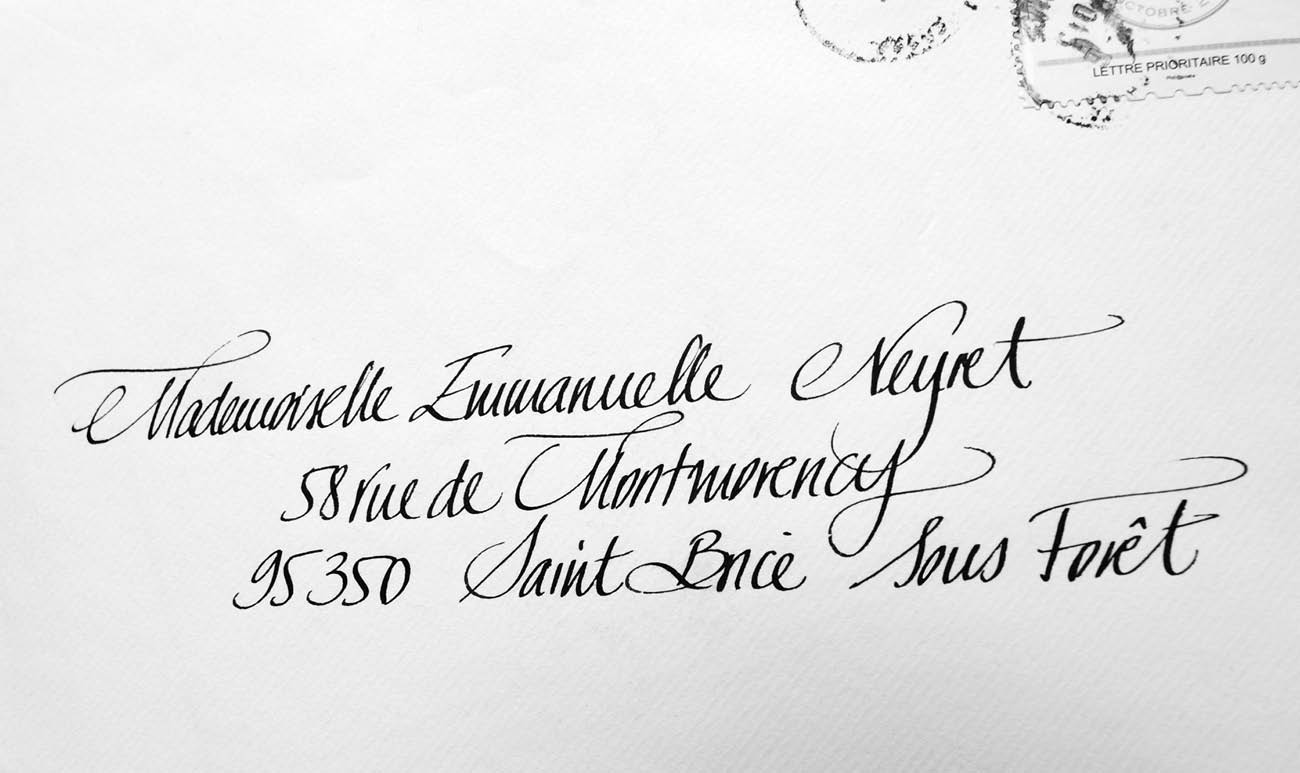 OCTOBRE 2
LETTRE PRIORITAIRE 100 g
Mademoiselle Emmanuelle Neyret
58 rue de Montmorency
95350 Saint Brice Sous Forêt